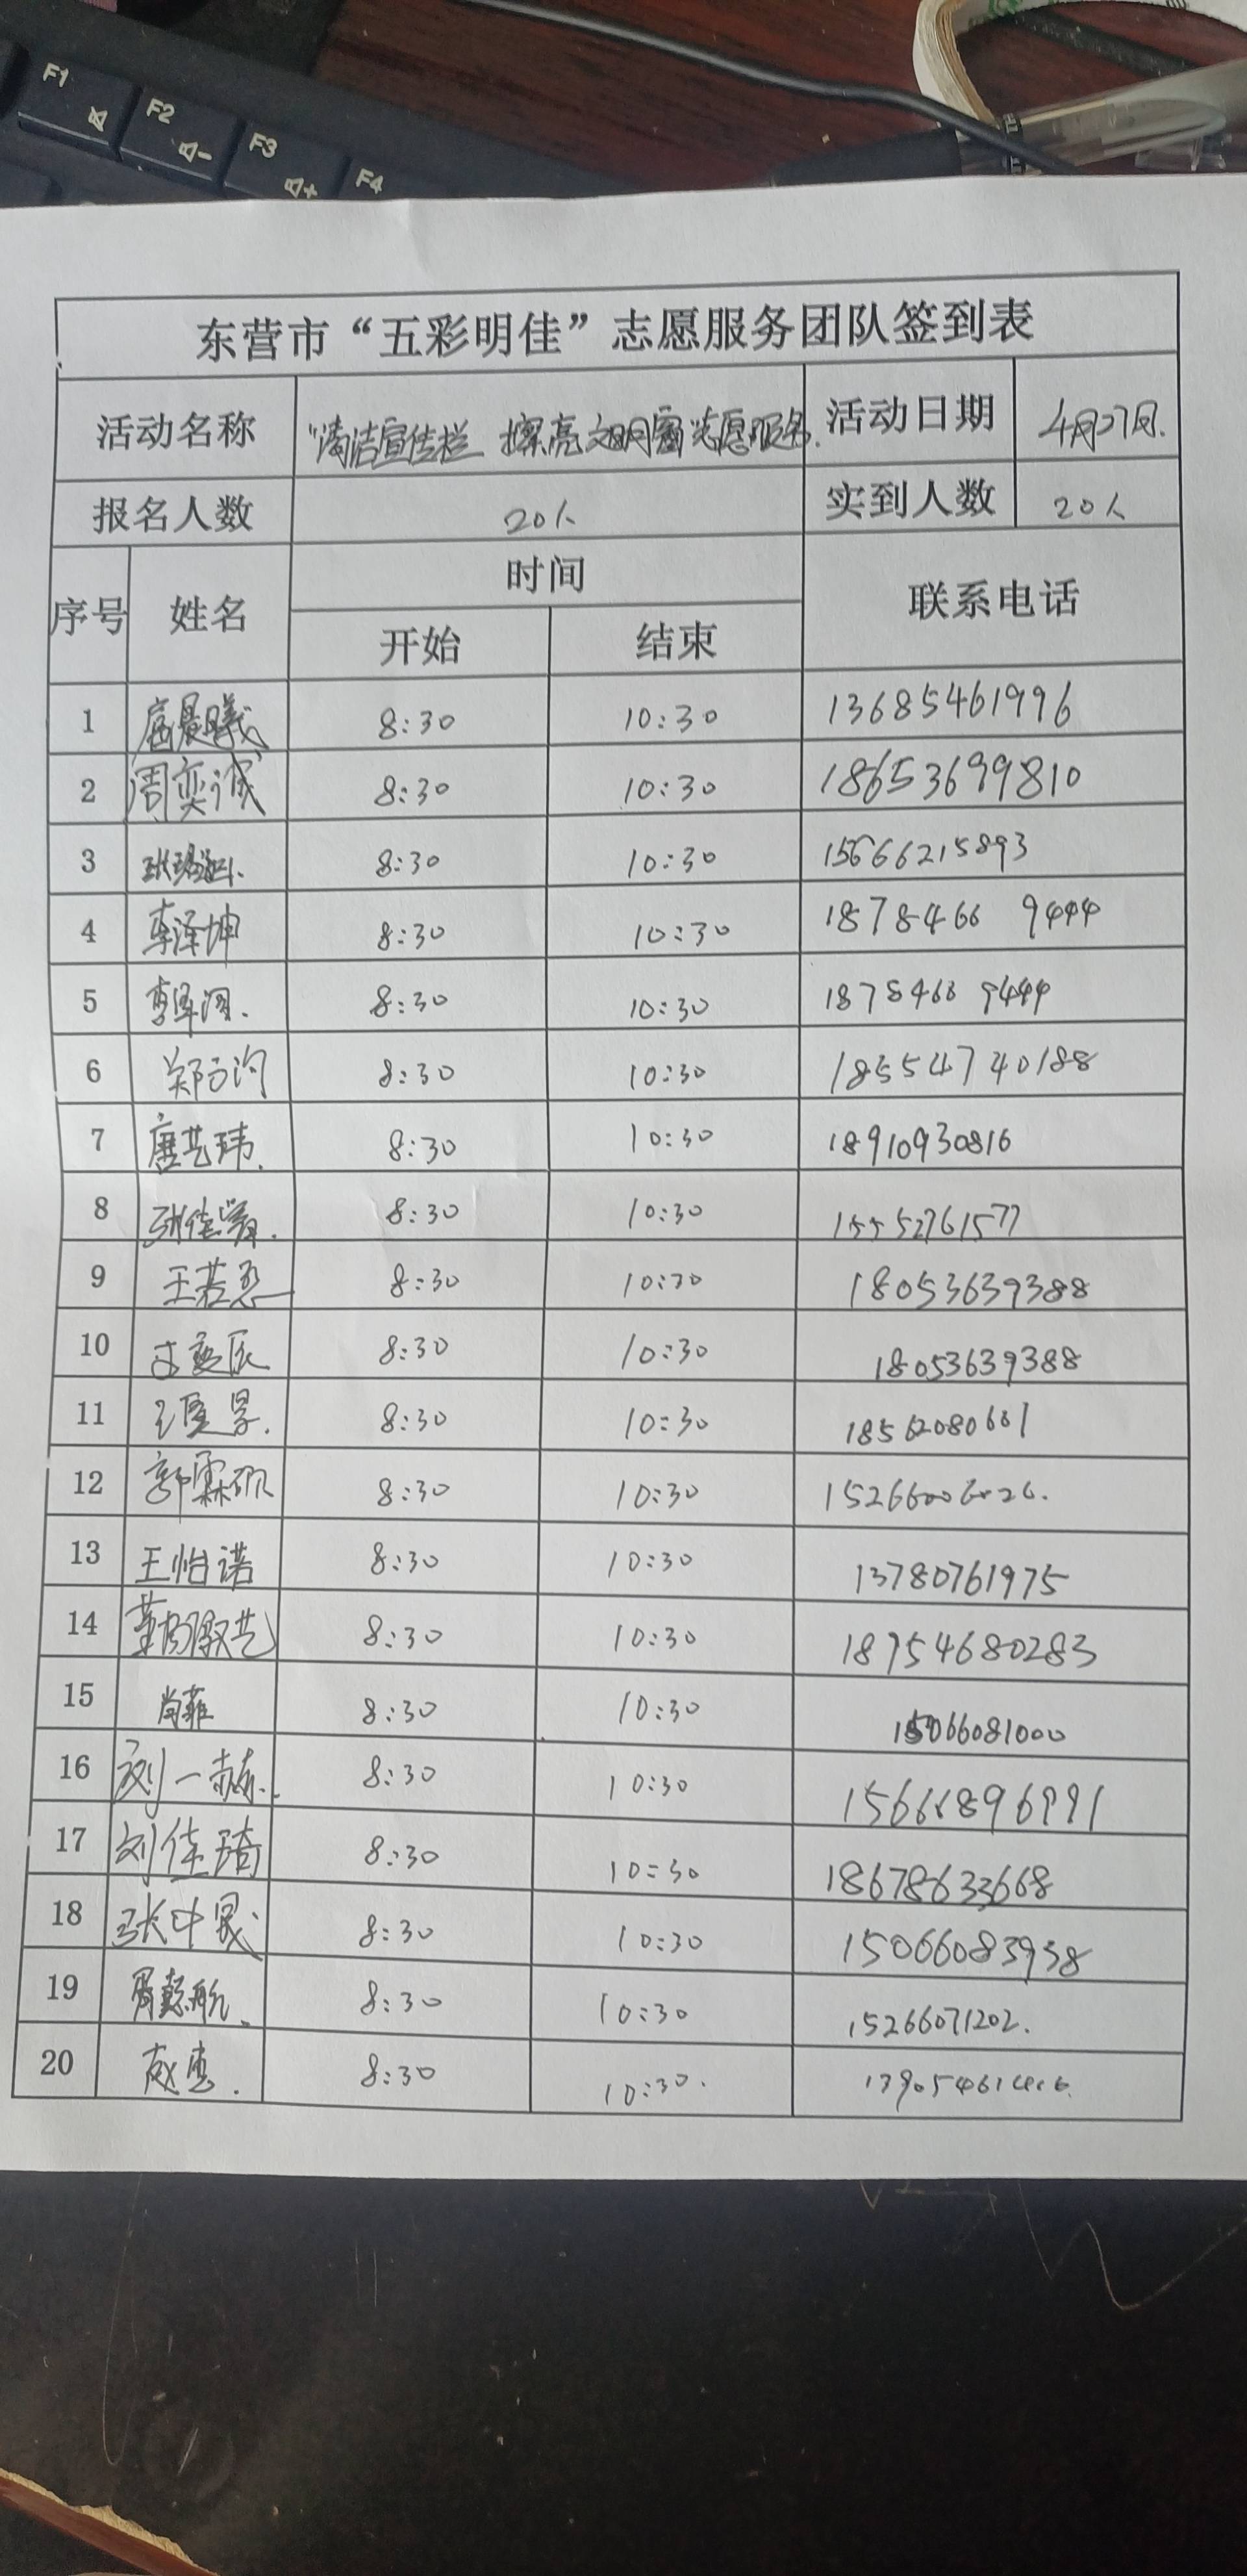 F1
F2
F3
F4
东营市“五彩明佳”志愿服务团队签到表
活动名称 “清洁宣传栏 擦亮文明窗”志愿服务. 活动日期 4月27日.
报名人数 20人 实到人数 20人
序号 姓名 时间 联系电话
开始 结束
1 8:30 10:30 13685461996
2 周奕诚 8:30 10:30 18653699810
3 8:30 10:30 15666215893
4 李泽坤 8:30 10:30 18784669444
5 8:30 10:30 18784669444
6 郑方沟 8:30 10:30 18554740188
7 唐艺玮. 8:30 10:30 18910930816
8 8:30 10:30 15552761577
9 8:30 10:30 18053639388
10 8:30 10:30 18053639388
11 8:30 10:30 18562080661
12 郭霖硕 8:30 10:30
13 王怡诺 8:30 10:30 13780761975
14 8:30 10:30 18954680283
15 肖菲 8:30 10:30 15066081000
16 刘一赫. 8:30 10:30
17 刘佳琦 8:30 10:30 18678633668
18 张中晟 8:30 10:30 15066083938
19 8:30 10:30 15266071202.
20 8:30 10:30.